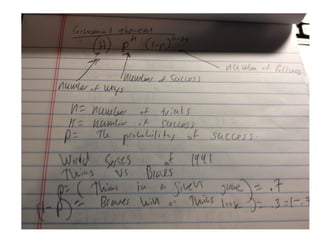 Binomial Theorem
(n k) p^k (1-p)^n-k
number of failures
number of success
number of ways
n = number of trials
k = number of success
p = The probability of success.
World Series of 1991
Twins vs Braves
p = (Twins in a given game) = .7
(1-p) = Braves win or Twins lose = .3 = 1-.7